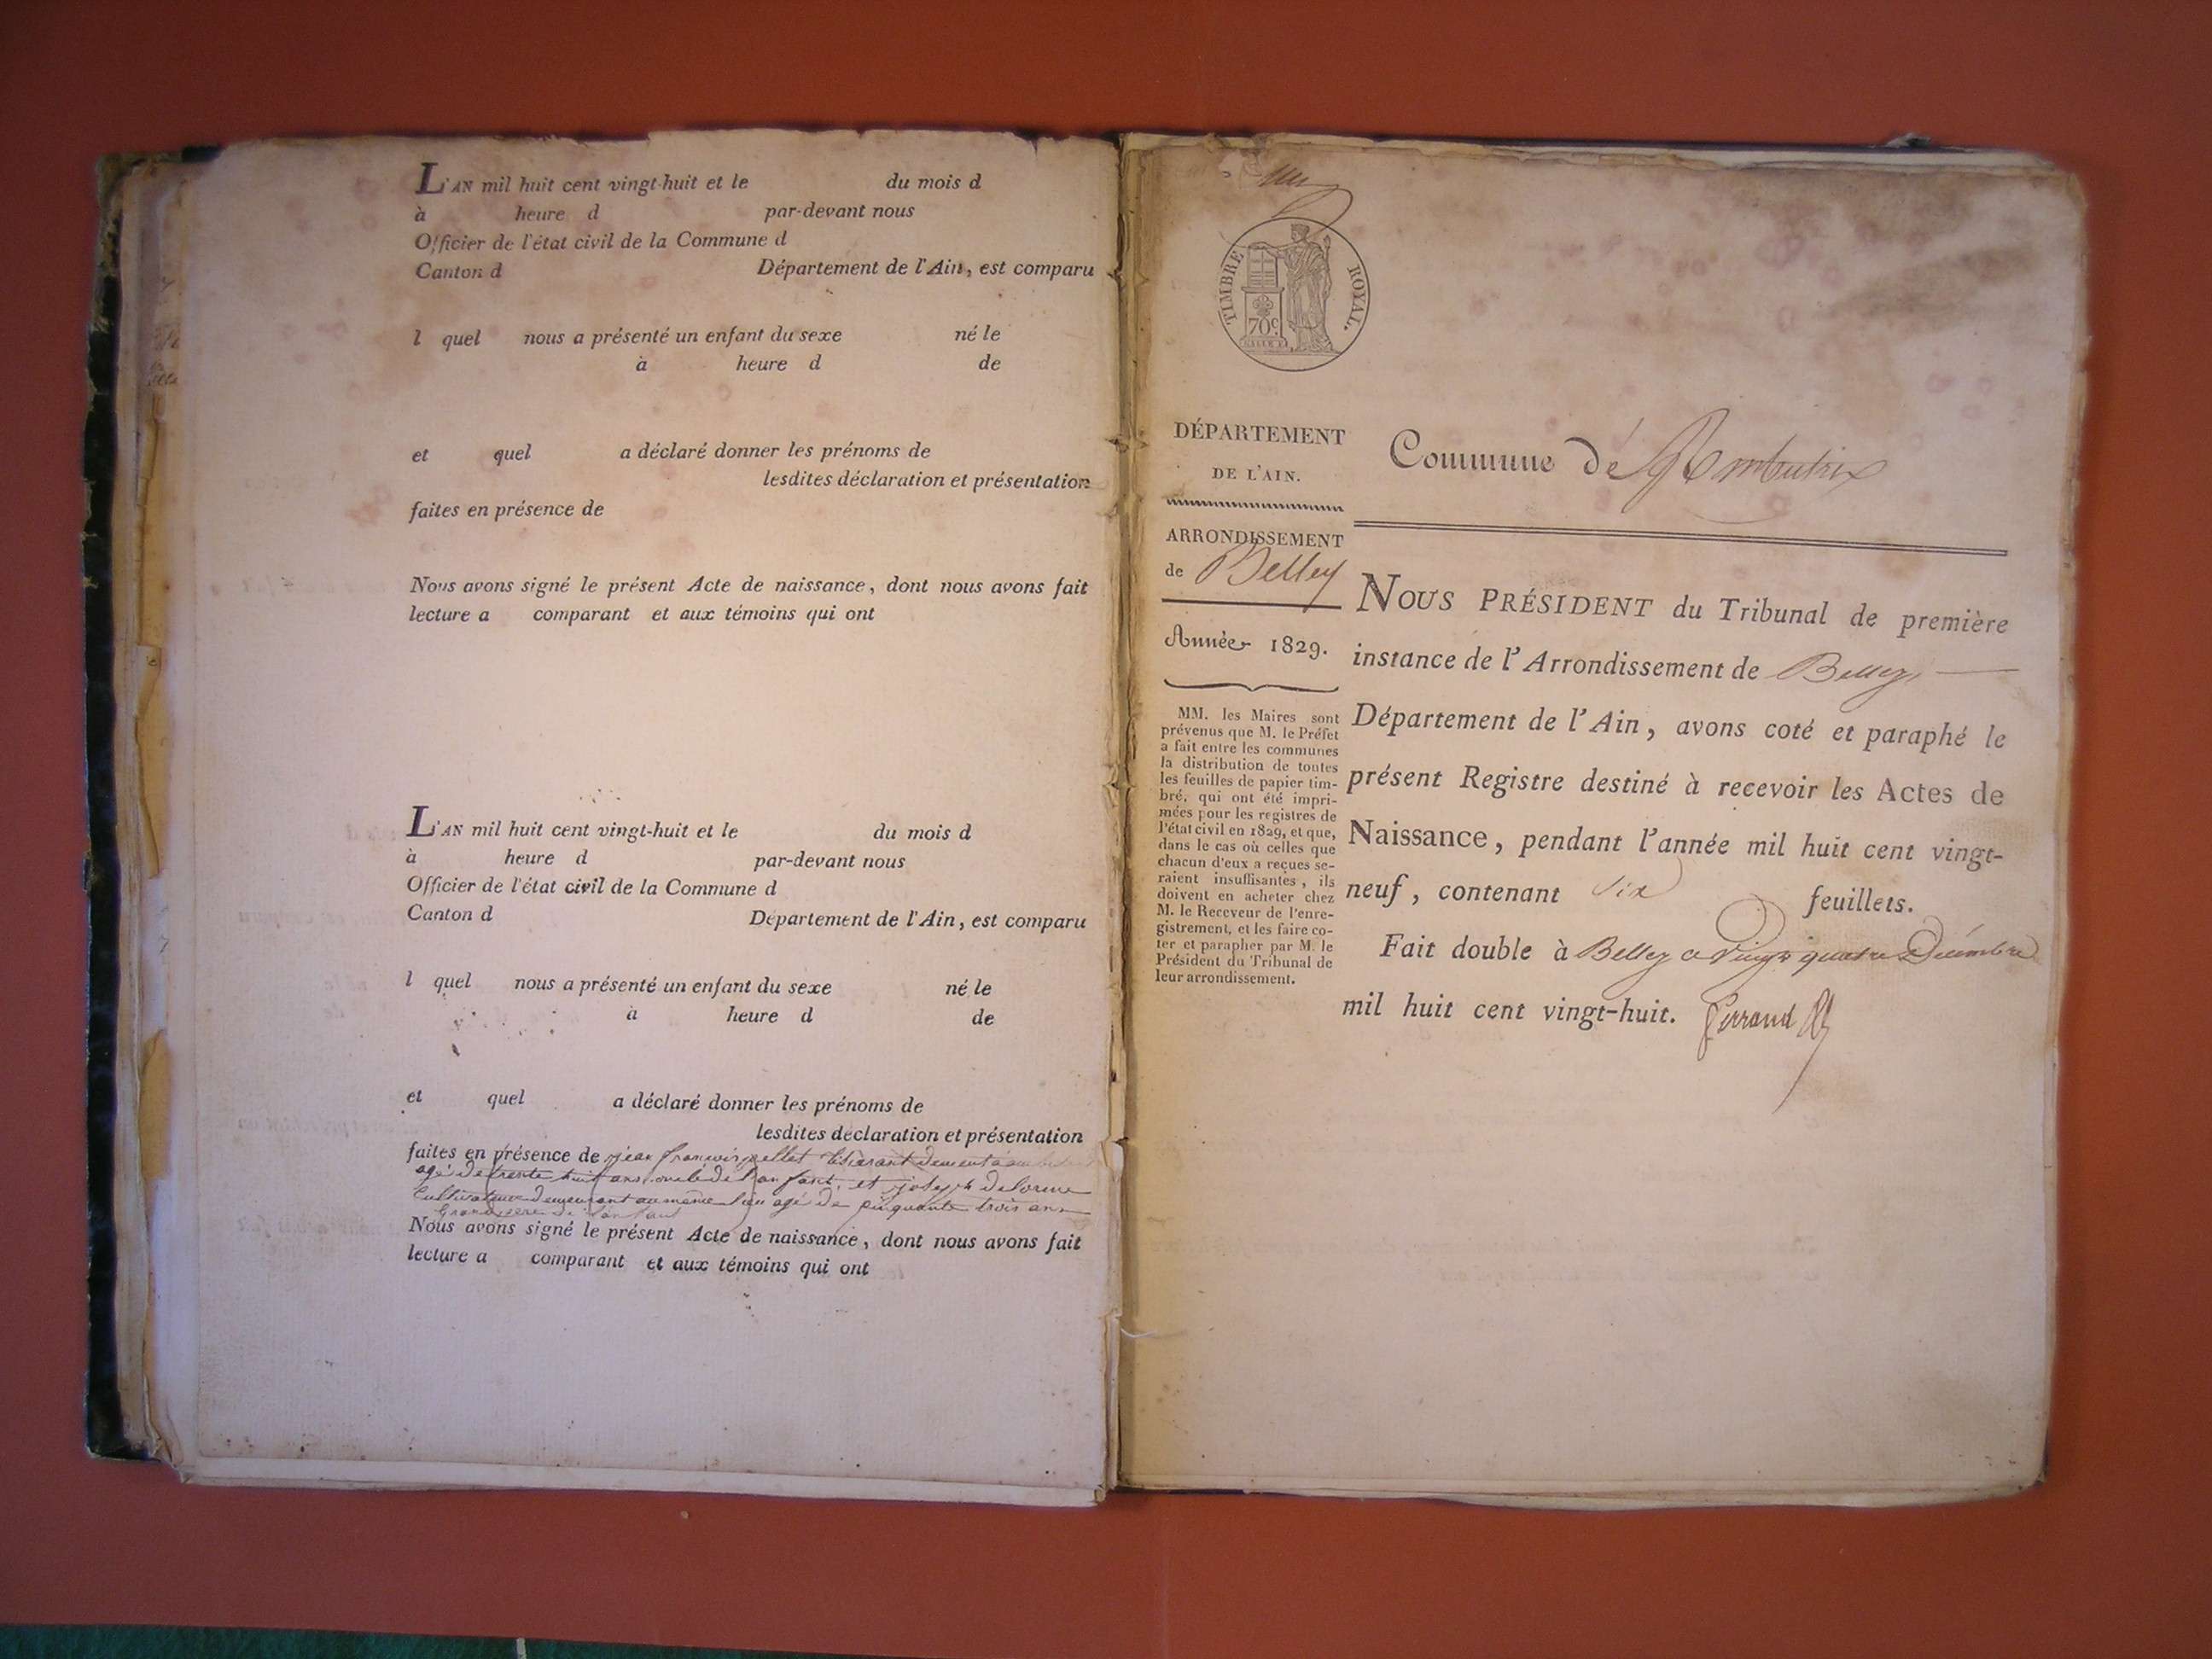 L'AN mil huit cent vingt-huit et le du mois d
à heure d par-devant nous
Officier de l'état civil de la Commune d
Canton d Département de l'Ain, est comparu
l quel nous a présenté un enfant du sexe né le
à heure d de
et quel a déclaré donner les prénoms de
lesdites déclaration et présentation
faites en présence de
Nous avons signé le présent Acte de naissance, dont nous avons fait
lecture a comparant et aux témoins qui ont
L'AN mil huit cent vingt-huit et le du mois d
à heure d par-devant nous
Officier de l'état civil de la Commune d
Canton d Département de l'Ain, est comparu
l quel nous a présenté un enfant du sexe né le
à heure d de
et quel a déclaré donner les prénoms de
lesdites déclaration et présentation
faites en présence de jean françois pellet
agé de trente huit ans oncle de l'enfant, et joseph delorme
Cultivateur demeurant au même lieu agé de cinquante trois ans
Grand pere de l'enfant
Nous avons signé le présent Acte de naissance, dont nous avons fait
lecture a comparant et aux témoins qui ont
un
TIMBRE ROYAL.
70c
DÉPARTEMENT
DE L'AIN.
Commune d'Ambutrix
ARRONDISSEMENT
de Belley
Année 1829.
MM. les Maires sont
prévenus que M. le Préfet
a fait entre les communes
la distribution de toutes
les feuilles de papier tim-
bré, qui ont été impri-
mées pour les registres de
l'état civil en 1829, et que,
dans le cas où celles que
chacun d'eux a reçues se-
raient insuffisantes, ils
doivent en acheter chez
M. le Receveur de l'enre-
gistrement, et les faire co-
ter et parapher par M. le
Président du Tribunal de
leur arrondissement.
NOUS PRÉSIDENT du Tribunal de première
instance de l'Arrondissement de Belley
Département de l'Ain, avons coté et paraphé le
présent Registre destiné à recevoir les Actes de
Naissance, pendant l'année mil huit cent vingt-
neuf, contenant six feuillets.
Fait double à Belley ce vingt quatre Décembre
mil huit cent vingt-huit.